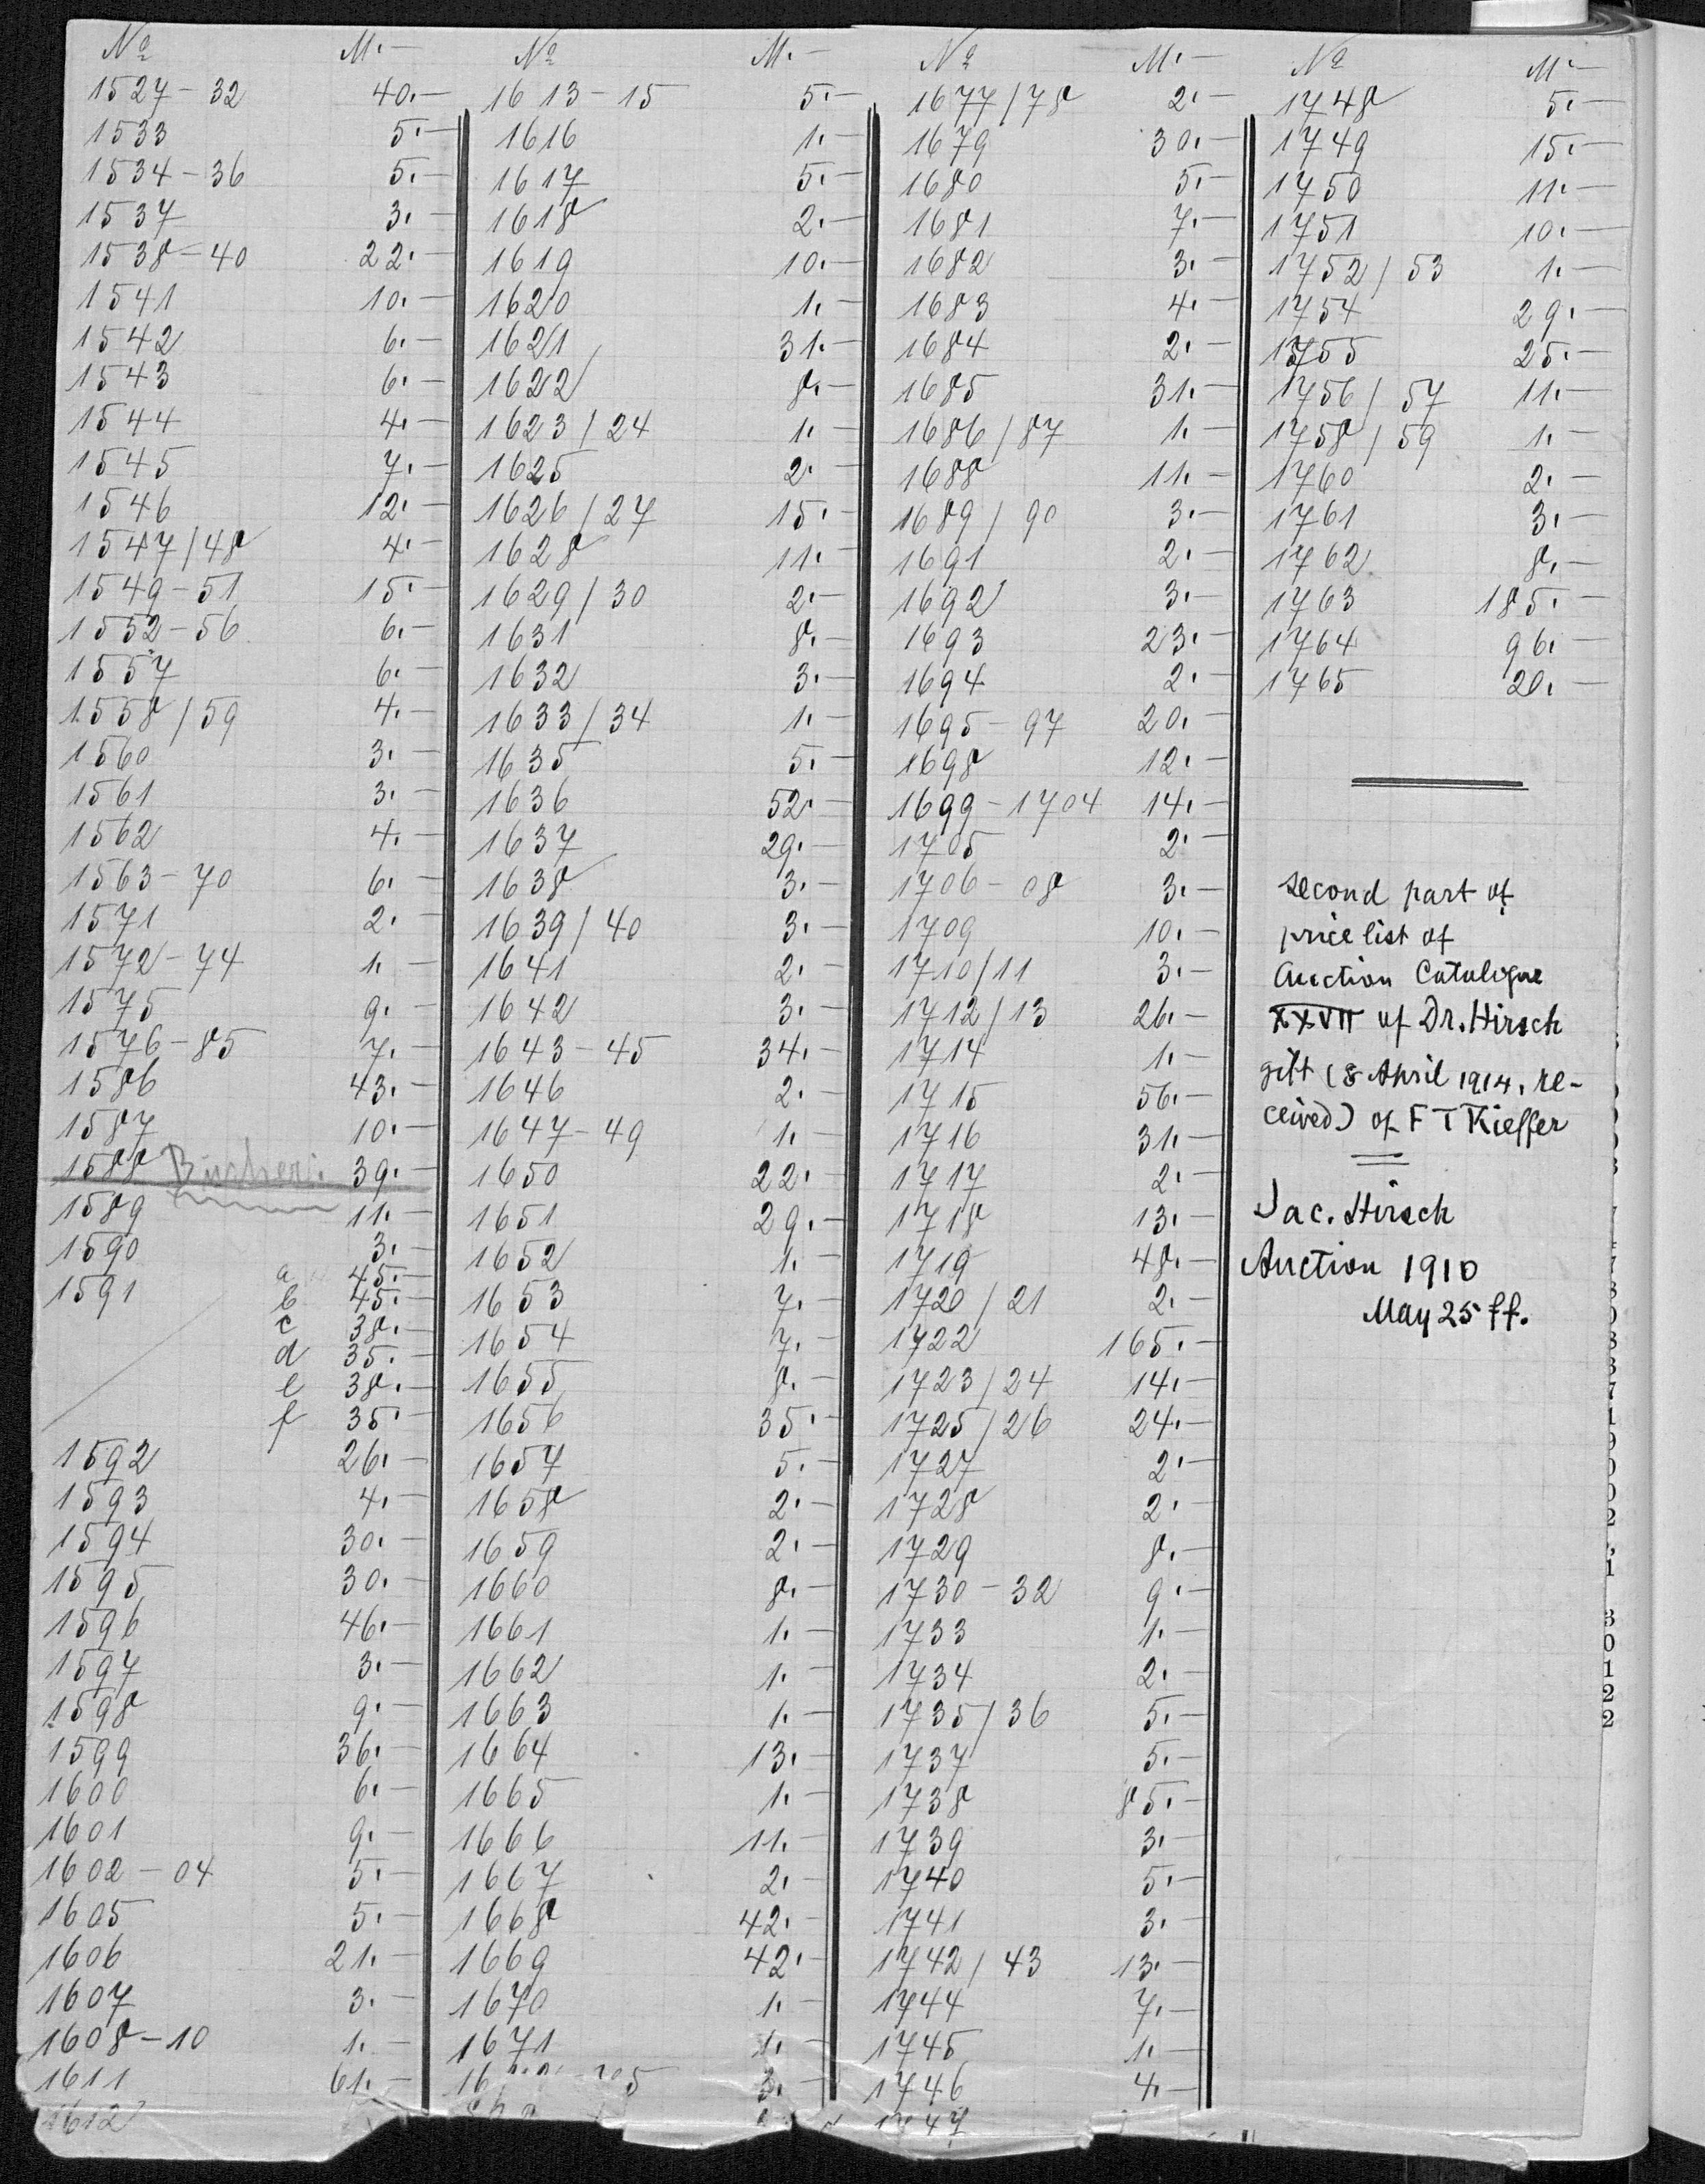 No M.—
1527-32 40.—
1533 5.—
1534-36 5.—
1537 3.—
1538-40 22.—
1541 10.—
1542 6.—
1543 6.—
1544 4.—
1545 7.—
1546 12.—
1547/48 4.—
1549-51 15.—
1552-56 6.—
1557 6.—
1558/59 4.—
1560 3.—
1561 3.—
1562 4.—
1563-70 6.—
1571 2.—
1572-74 1.—
1575 9.—
1576-85 7.—
1586 43.—
1587 10.—
1588 Bücher: 39.—
1589 11.—
1590 3.—
1591 a 45.—
b 45.—
c 38.—
d 35.—
e 38.—
f 35.—
1592 26.—
1593 4.—
1594 30.—
1595 30.—
1596 46.—
1597 3.—
1598 9.—
1599 36.—
1600 6.—
1601 9.—
1602-04 5.—
1605 5.—
1606 21.—
1607 3.—
1608-10 1.—
1611 61.—
1612
No M.—
1613-15 5.—
1616 1.—
1617 5.—
1618 2.—
1619 10.—
1620 1.—
1621 31.—
1622 8.—
1623/24 1.—
1625 2.—
1626/27 15.—
1628 11.—
1629/30 2.—
1631 8.—
1632 3.—
1633/34 1.—
1635 5.—
1636 52.—
1637 29.—
1638 3.—
1639/40 3.—
1641 2.—
1642 3.—
1643-45 34.—
1646 2.—
1647-49 1.—
1650 22.—
1651 29.—
1652 1.—
1653 7.—
1654 7.—
1655 8.—
1656 35.—
1657 5.—
1658 2.—
1659 2.—
1660 8.—
1661 1.—
1662 1.—
1663 1.—
1664 13.—
1665 1.—
1666 11.—
1667 2.—
1668 42.—
1669 42.—
1670 1.—
1671 1.—
3.—
No M.—
1677/78 2.—
1679 30.—
1680 5.—
1681 7.—
1682 3.—
1683 4.—
1684 2.—
1685 31.—
1686/87 1.—
1688 11.—
1689/90 3.—
1691 2.—
1692 3.—
1693 23.—
1694 2.—
1695-97 20.—
1698 12.—
1699-1704 14.—
1705 2.—
1706-08 3.—
1709 10.—
1710/11 3.—
1712/13 26.—
1714 1.—
1715 56.—
1716 31.—
1717 2.—
1718 13.—
1719 48.—
1720/21 2.—
1722 165.—
1723/24 14.—
1725/26 24.—
1727 2.—
1728 2.—
1729 8.—
1730-32 9.—
1733 1.—
1734 2.—
1735/36 5.—
1737 5.—
1738 85.—
1739 3.—
1740 5.—
1741 3.—
1742/43 13.—
1744 7.—
1745 1.—
1746 4.—
1747
No M.—
1748 5.—
1749 15.—
1750 11.—
1751 10.—
1752/53 1.—
1754 29.—
1755 25.—
1756/57 11.—
1758/59 1.—
1760 2.—
1761 3.—
1762 8.—
1763 185.—
1764 96.—
1765 20.—
second part of
price list of
Auction Catalogue
XXVII of Dr. Hirsch
gift (8 April 1914, re-
ceived) of F T Kieffer
Jac. Hirsch
Auction 1910
May 25 ff.